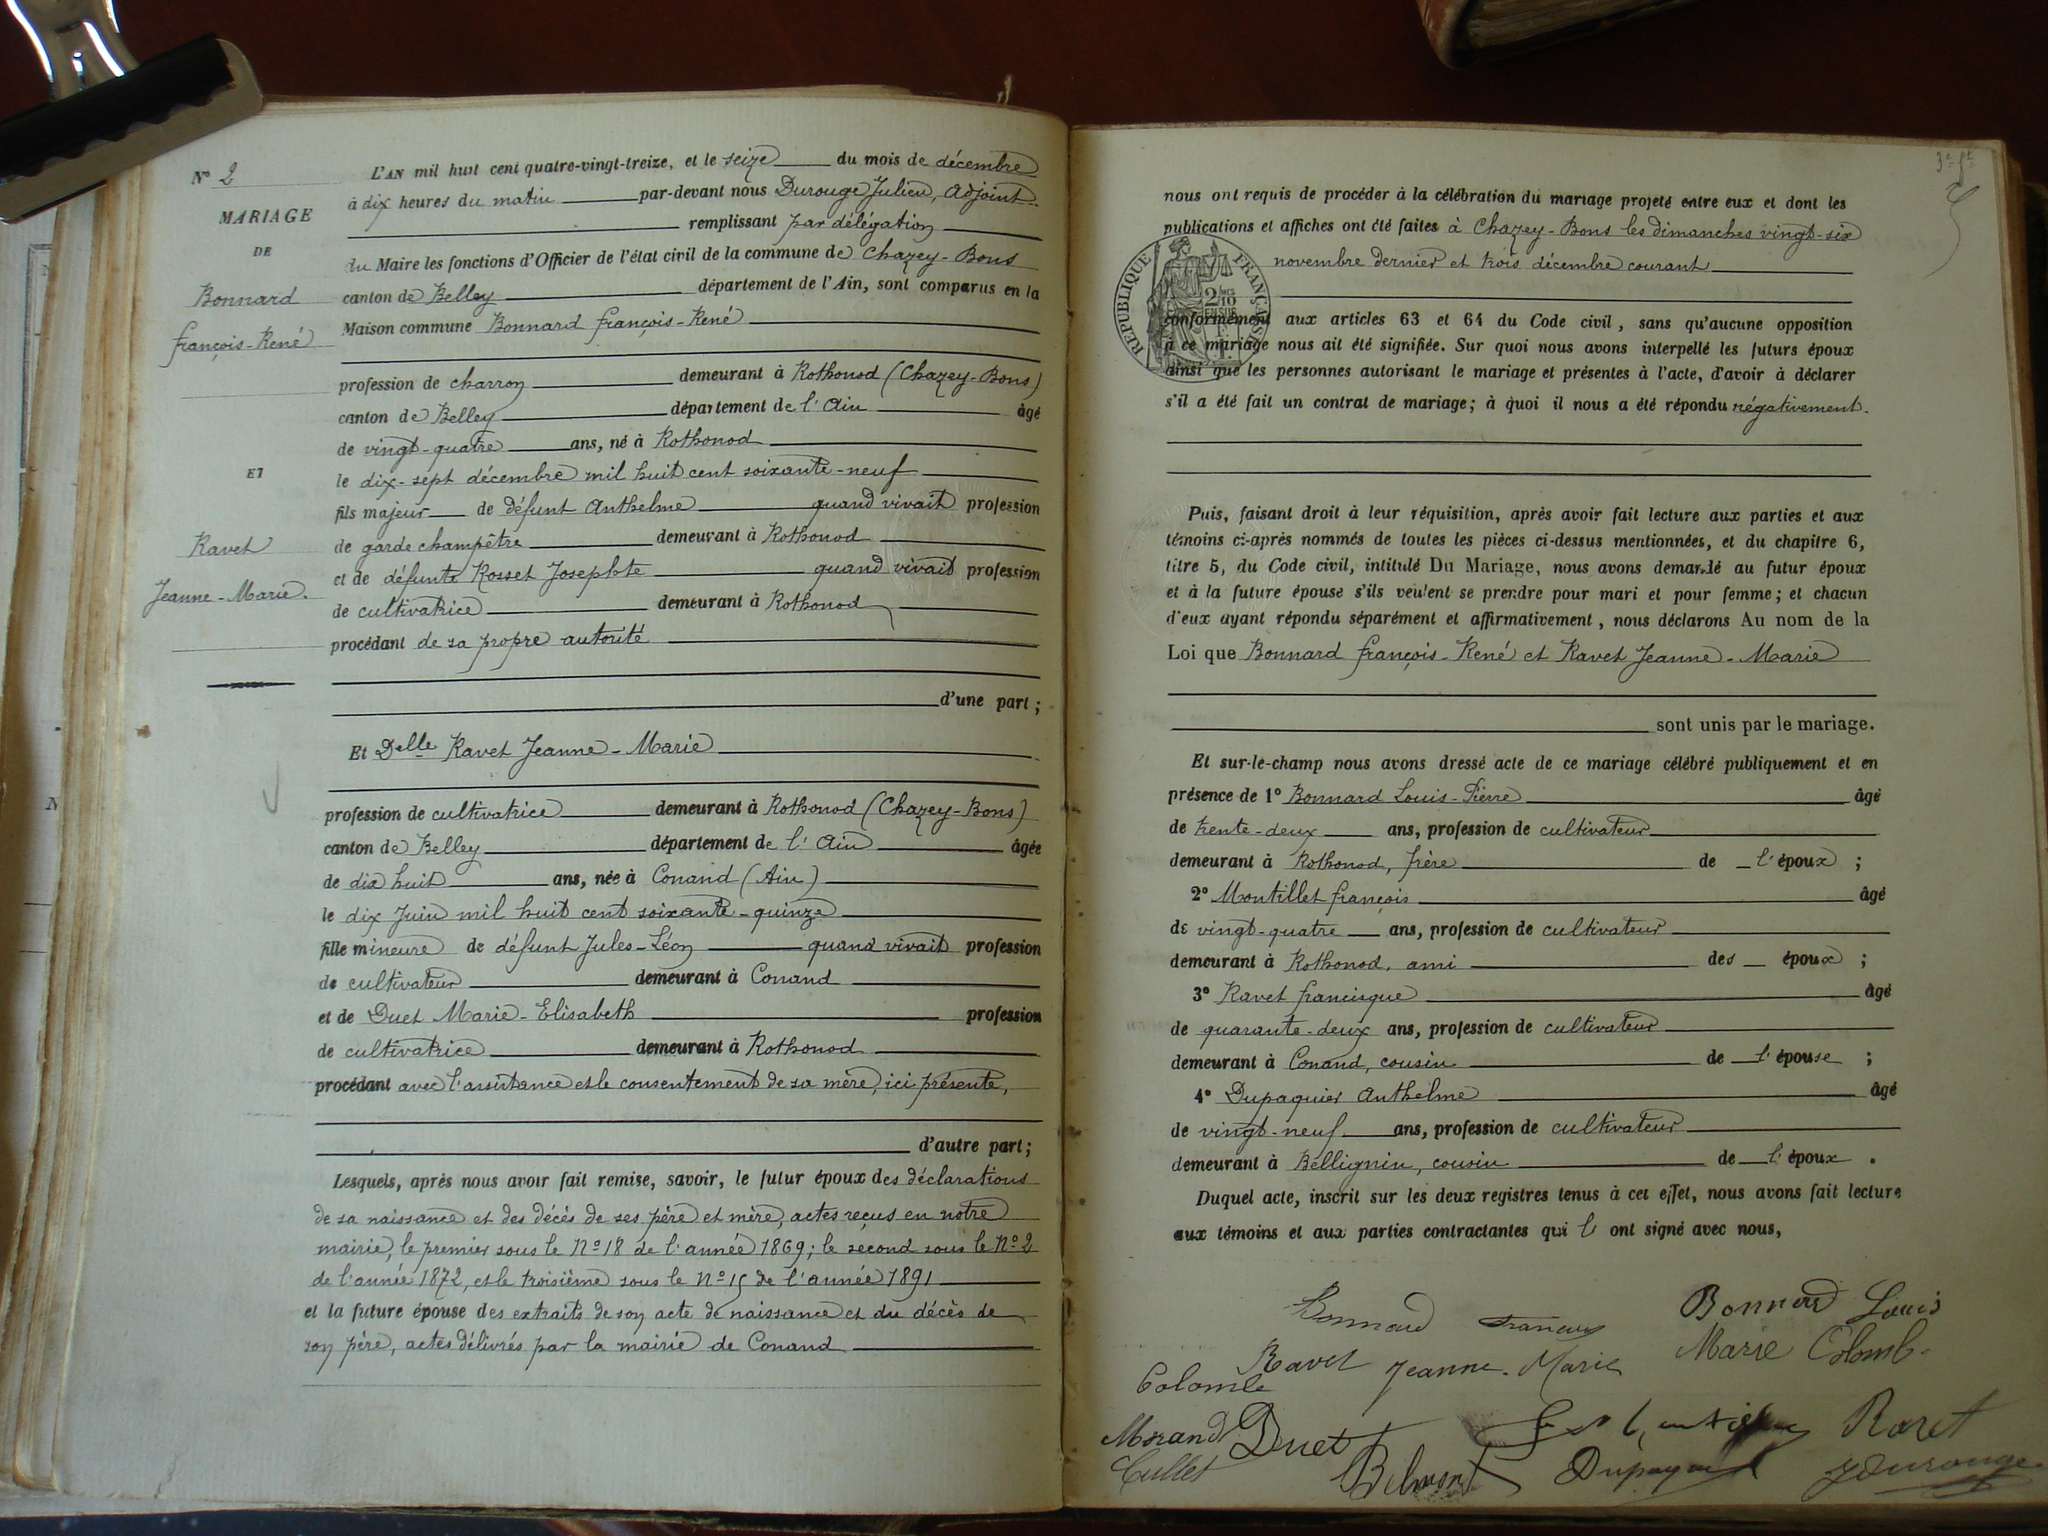 N° 2
MARIAGE
DE
Bonnard
françois-René
ET
Ravet
Jeanne-Marie.
L'AN mil huit cent quatre-vingt-treize, et le seize du mois de décembre
à dix heures du matin par-devant nous Durouge Julien, Adjoint
remplissant par délégation
du Maire les fonctions d'Officier de l'état civil de la commune de Chazey-Bons
canton de Belley département de l'Ain, sont comparus en la
Maison commune Bonnard françois-René
profession de charron demeurant à Rothonod (Chazey-Bons)
canton de Belley département de l'Ain âgé
de vingt-quatre ans, né à Rothonod
le dix-sept décembre mil huit cent soixante-neuf
fils majeur de défunt Anthelme quand vivait profession
de garde champêtre demeurant à Rothonod
et de défunte Rosset Josephte quand vivait profession
de cultivatrice demeurant à Rothonod
procédant de sa propre autorité
d'une part ;
Et Delle Ravet Jeanne-Marie
profession de cultivatrice demeurant à Rothonod (Chazey-Bons)
canton de Belley département de l'Ain âgée
de dix huit ans, née à Conand (Ain)
le dix Juin mil huit cent soixante-quinze
fille mineure de défunt Jules-Léon quand vivait profession
de cultivateur demeurant à Conand
et de Duet Marie-Elisabeth profession
de cultivatrice demeurant à Rothonod
procédant avec l'assistance et le consentement de sa mère, ici présente,
d'autre part ;
Lesquels, après nous avoir fait remise, savoir, le futur époux des déclarations
de sa naissance et des décès de ses père et mère, actes reçus en notre
mairie, le premier sous le N° 18 de l'année 1869; le second sous le N° 2
de l'année 1872, et le troisième sous le N° 15 de l'année 1891
et la future épouse des extraits de son acte de naissance et du décès de
son père, actes délivrés par la mairie de Conand
nous ont requis de procéder à la célébration du mariage projeté entre eux et dont les
publications et affiches ont été faites à Chazey-Bons les dimanches vingt-six
novembre dernier et trois décembre courant
RÉPUBLIQUE FRANÇAISE
conformément aux articles 63 et 64 du Code civil, sans qu'aucune opposition
à ce mariage nous ait été signifiée. Sur quoi nous avons interpellé les futurs époux
ainsi que les personnes autorisant le mariage et présentes à l'acte, d'avoir à déclarer
s'il a été fait un contrat de mariage; à quoi il nous a été répondu négativement.
Puis, faisant droit à leur réquisition, après avoir fait lecture aux parties et aux
témoins ci-après nommés de toutes les pièces ci-dessus mentionnées, et du chapitre 6,
titre 5, du Code civil, intitulé Du Mariage, nous avons demandé au futur époux
et à la future épouse s'ils veulent se prendre pour mari et pour femme; et chacun
d'eux ayant répondu séparément et affirmativement, nous déclarons Au nom de la
Loi que Bonnard françois-René et Ravet Jeanne-Marie
sont unis par le mariage.
Et sur-le-champ nous avons dressé acte de ce mariage célébré publiquement et en
présence de 1° Bonnard Louis-Pierre âgé
de trente-deux ans, profession de cultivateur
demeurant à Rothonod, frère de l'époux ;
2° Montillet françois âgé
de vingt-quatre ans, profession de cultivateur
demeurant à Rothonod, ami des époux ;
3° Ravet francisque âgé
de quarante-deux ans, profession de cultivateur
demeurant à Conand, cousin de l'épouse ;
4° Dupaquier Anthelme âgé
de vingt-neuf ans, profession de cultivateur
demeurant à Bellignin, cousin de l'époux .
Duquel acte, inscrit sur les deux registres tenus à cet effet, nous avons fait lecture
aux témoins et aux parties contractantes qui l ont signé avec nous,
Bonnard françois
Bonnard Louis
Ravet Jeanne-Marie
Marie Colomb
Colomb
Morand
Duet
Ravet
Cullet
Dupaquier
JDurouge